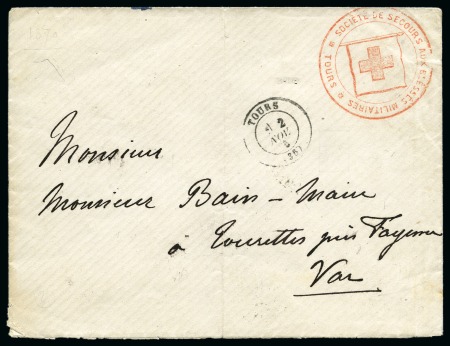 1870
SOCIÉTÉ DE SECOURS AUX BLESSÉS MILITAIRES * TOURS *
TOURS
2
(36)
Monsieur
Monsieur Bain - Maire
à Tourettes près Fayence
Var